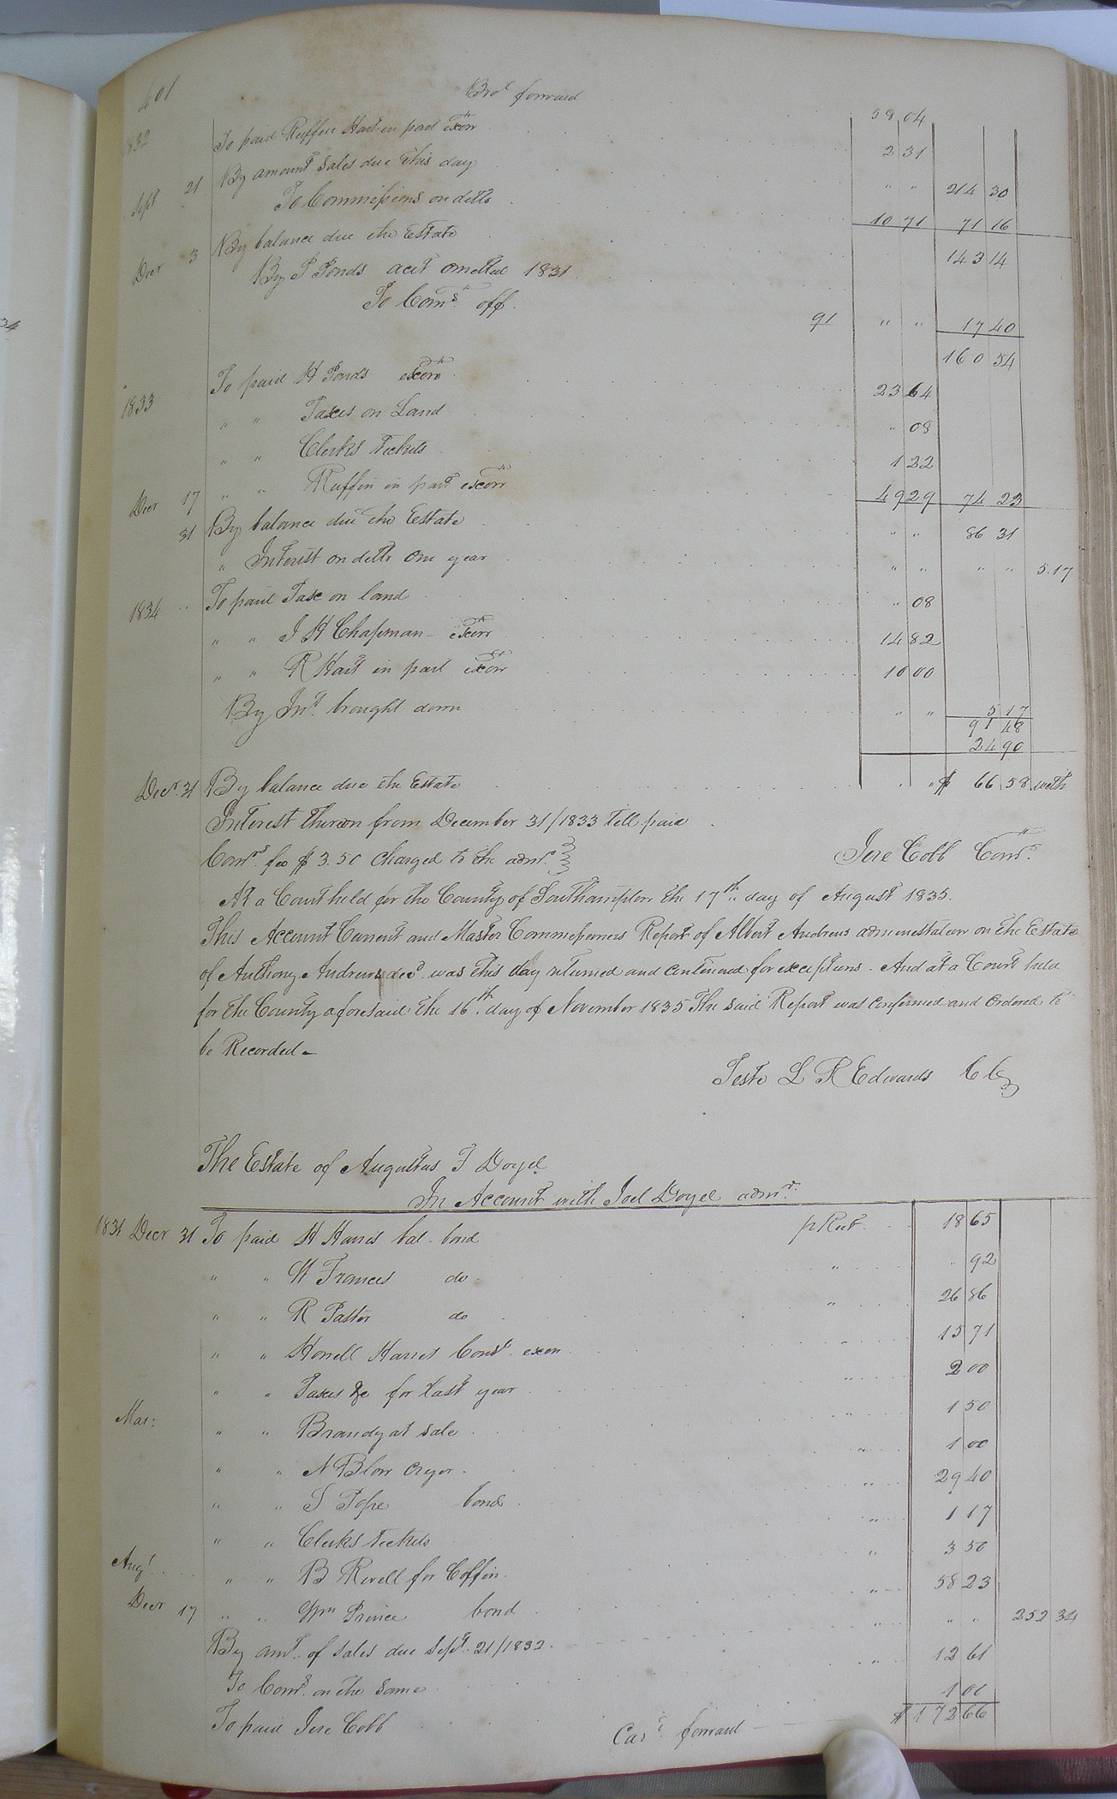 401
Bro.t forward 58 04
1832 To paid Ruffin Hart in part Exon 2 31
Sept 21 By amount sales due this day " " 214 30
To Commissions on ditto 10 71 71 16
Decr 3 By balance due the Estate 143 14
By P Ponds acct omitted 1831
To Com.s off. 91 " " 17 40
160 54
1833 To paid H Ponds exon 23 64
" " Taxes on Land " 08
" " Clerks Tickets 1 22
Decr 17 " " Ruffin in part exon 49 29 74 23
31 By balance due the Estate " " 86 31
" Interest on ditto One year " " " " 5.17
1834 To paid Tax on land " 08
" " J H Chapman Exon 14 82
" " R Hart in part exon 10 00
By Int. brought down " " 5 17
91 48
24 90
Decr. 31 By balance due the Estate " " $ 66 58 with
Interest thereon from December 31/1833 till paid
Comr. fee $3.50 charged to the admr. Jere Cobb Comr.
At a Court held for the County of Southampton the 17th day of August 1835.
This Account Current and Master Commissioners Report of Albert Andrews administration on the Estate
of Anthony Andrews decd. was this day returned and continued for exceptions. And at a Court held
for the County aforesaid the 16th day of November 1835 The said Report was confirmed and Ordered to
be Recorded
Teste L R Edwards C C
The Estate of Augustus F Doyel
In Account with Joel Doyel admr.
1831 Decr 31 To paid H Harris bal. bond p Rect 18 65
" " W Frances do " " 92
" " R Pastor do " 26 86
" " Howell Harris Const. exon " 15 71
" " Taxes &c for last year " 2 00
Mar: " " Brandy at sale " 1 50
" " N Blow Cryer " 1 00
" " S Pope bond " 29 40
" " Clerks tickets " 1 17
Augt " " B Revell for Coffin " 3 50
Decr 17 " " Wm Prince bond " 58 23
By amt. of sales due Sept. 21/1832 " " " 252 34
To Coms. on the same " 12 61
To paid Jere Cobb 1 00
Card. forward $172 66